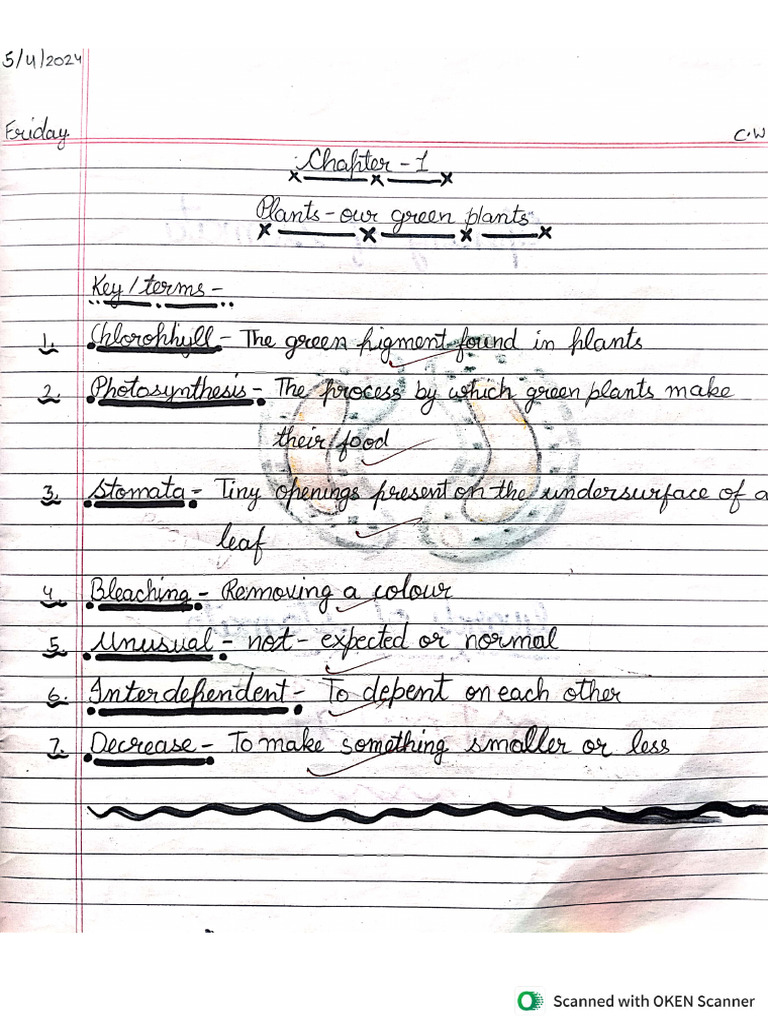 5/4/2024
Friday
C.W
Chapter - 1
Plants - our green plants
Key/terms -
1. Chlorophyll - The green pigment found in plants
2. Photosynthesis - The process by which green plants make
their food
3. Stomata - Tiny openings present on the undersurface of a
leaf
4. Bleaching - Removing a colour
5. Unusual - not - expected or normal
6. Interdependent - To depent on each other
7. Decrease - To make something smaller or less
Scanned with OKEN Scanner